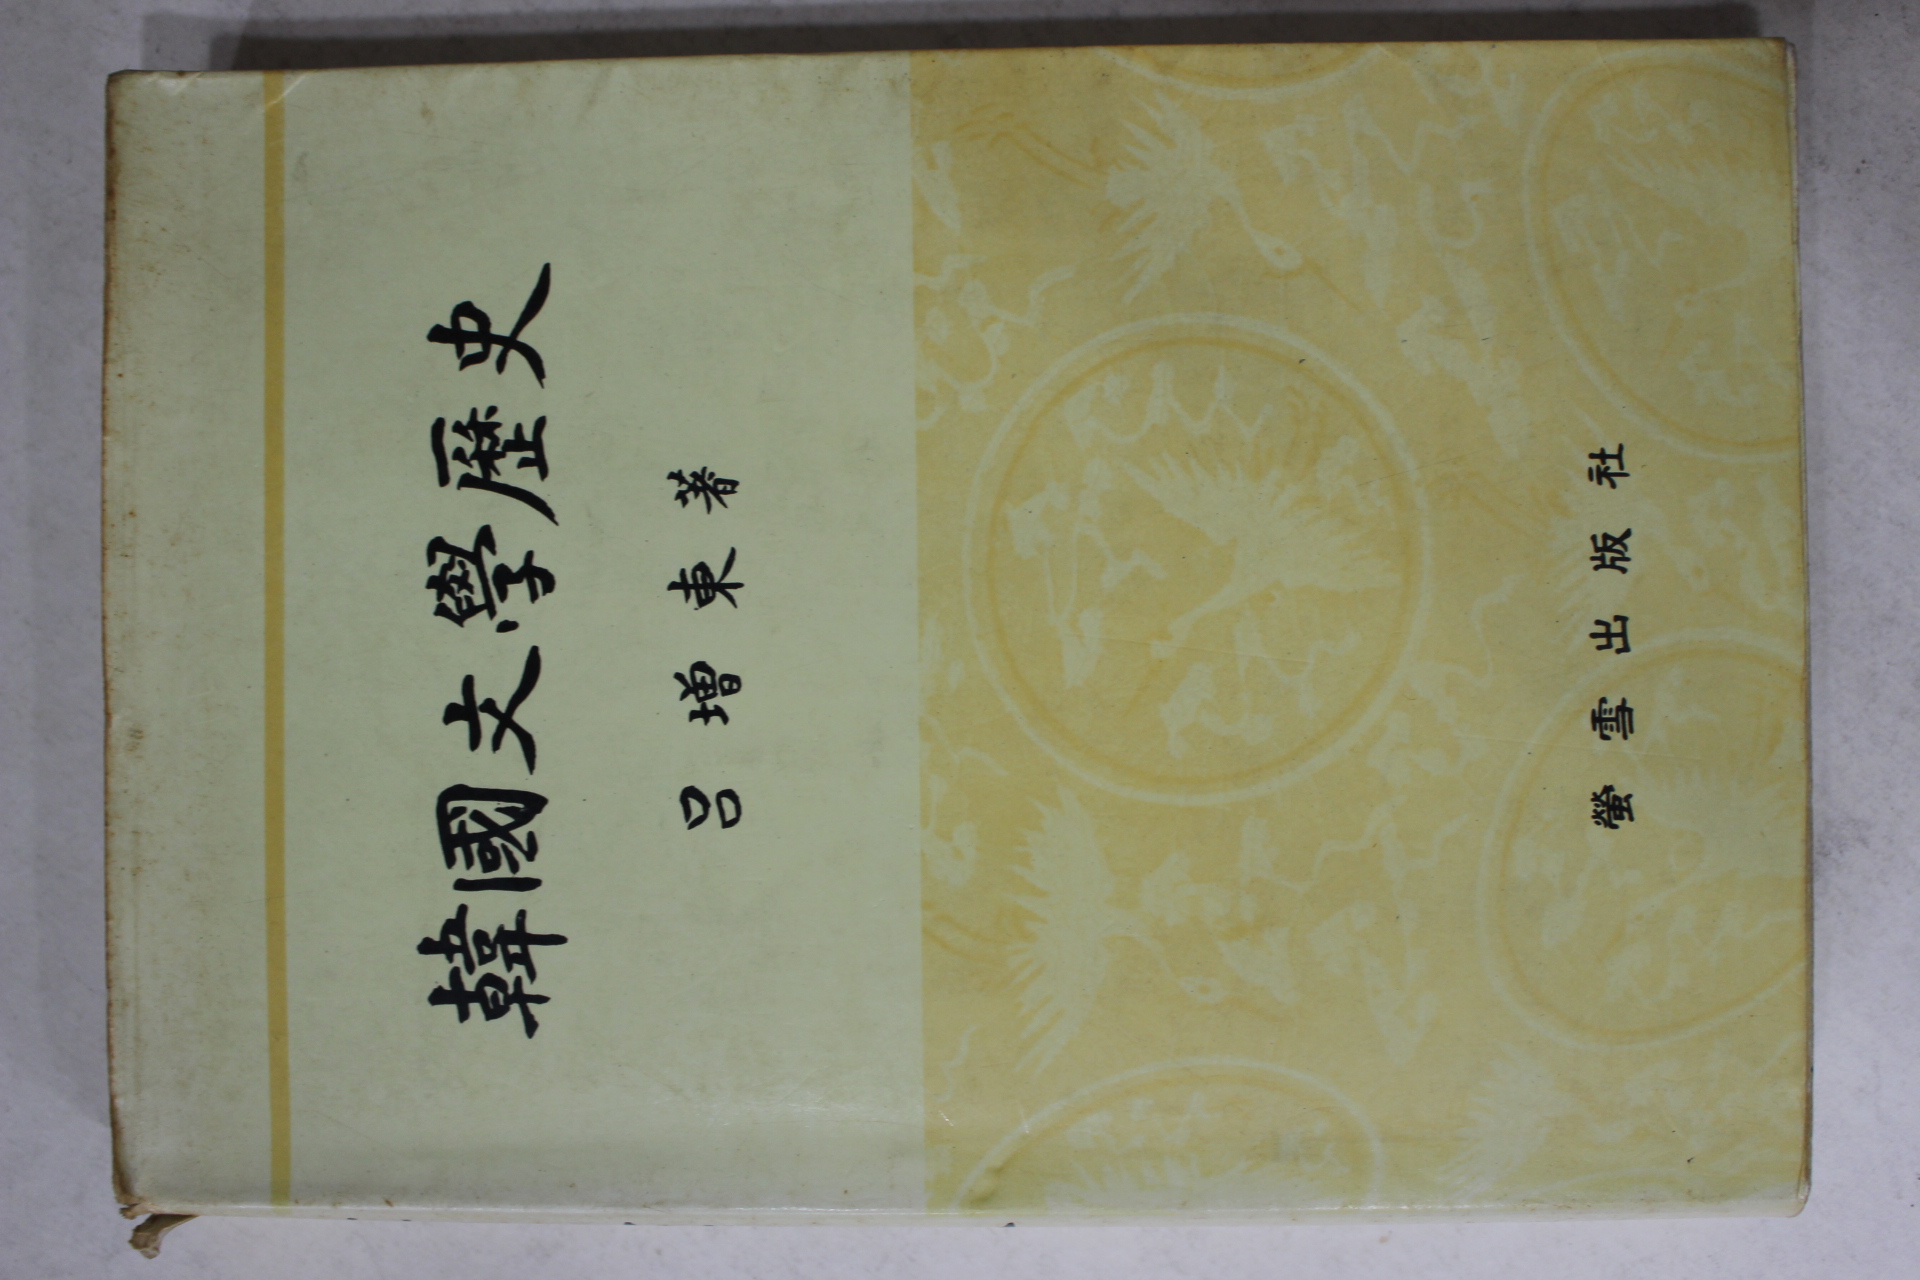 韓國文學歷史
呂增東 著
螢雪出版社